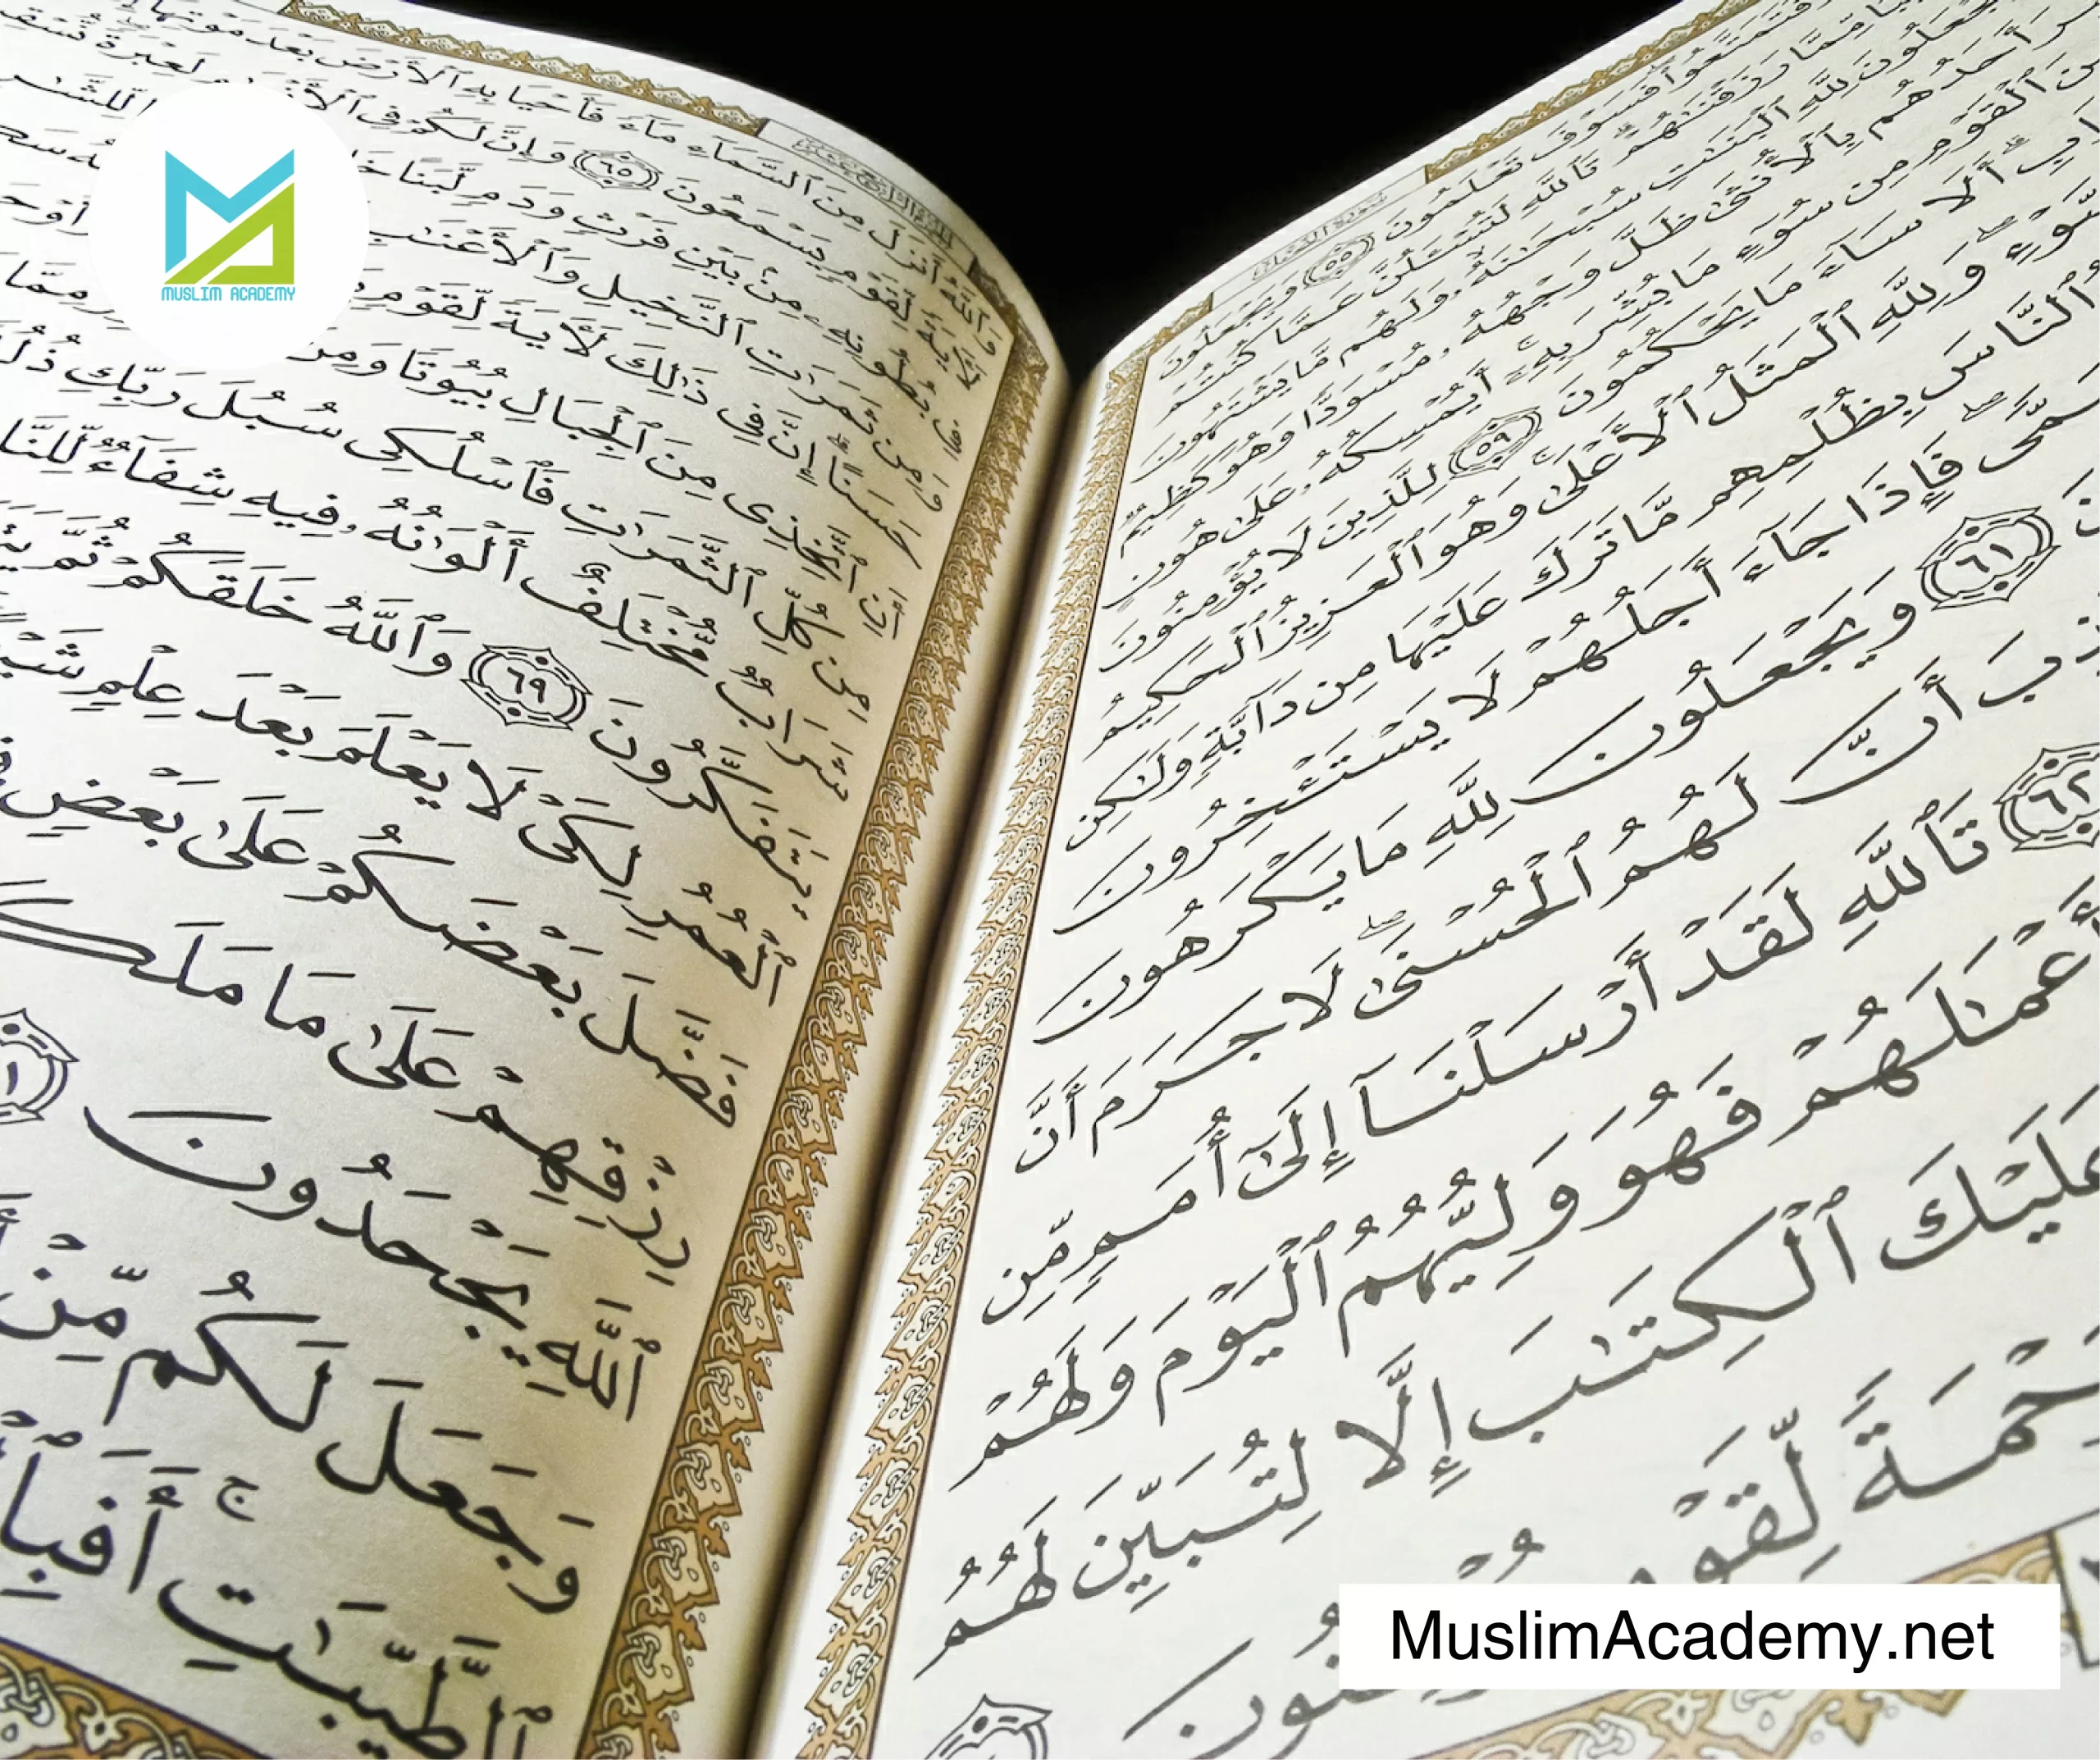 فَتَمَتَّعُوا۟ فَسَوْفَ تَعْلَمُونَ ٥٥ وَيَجْعَلُونَ
مِّمَّا رَزَقْنَـٰهُمْ تَٱللَّهِ لَتُسْـَٔلُنَّ عَمَّا كُنتُمْ
وَيَجْعَلُونَ لِلَّهِ ٱلْبَنَـٰتِ سُبْحَـٰنَهُۥ وَلَهُم مَّا يَشْتَهُونَ
أَحَدُهُم بِٱلْأُنثَىٰ ظَلَّ وَجْهُهُۥ مُسْوَدًّا وَهُوَ كَظِيمٌ
مِنَ ٱلْقَوْمِ مِن سُوٓءِ مَا بُشِّرَ بِهِۦٓ أَيُمْسِكُهُۥ عَلَىٰ هُونٍ
أَلَا سَآءَ مَا يَحْكُمُونَ ٥٩ لِلَّذِينَ لَا يُؤْمِنُونَ
ٱلسَّوْءِ ۖ وَلِلَّهِ ٱلْمَثَلُ ٱلْأَعْلَىٰ ۚ وَهُوَ ٱلْعَزِيزُ ٱلْحَكِيمُ
ٱلنَّاسَ بِظُلْمِهِم مَّا تَرَكَ عَلَيْهَا مِن دَآبَّةٍ وَلَـٰكِن
فَإِذَا جَآءَ أَجَلُهُمْ لَا يَسْتَـْٔخِرُونَ
٦١ وَيَجْعَلُونَ لِلَّهِ مَا يَكْرَهُونَ
أَنَّ لَهُمُ ٱلْحُسْنَىٰ ۖ لَا جَرَمَ أَنَّ
٦٢ تَٱللَّهِ لَقَدْ أَرْسَلْنَآ إِلَىٰٓ أُمَمٍ مِّن
أَعْمَـٰلَهُمْ فَهُوَ وَلِيُّهُمُ ٱلْيَوْمَ وَلَهُمْ
عَلَيْكَ ٱلْكِتَـٰبَ إِلَّا لِتُبَيِّنَ لَهُمُ
لِّقَوْمٍ
وَٱللَّهُ أَنزَلَ مِنَ ٱلسَّمَآءِ مَآءً فَأَحْيَا بِهِ ٱلْأَرْضَ بَعْدَ مَوْتِهَآ
لَـَٔايَةً لِّقَوْمٍ يَسْمَعُونَ ٦٥ وَإِنَّ لَكُمْ فِى لَعِبْرَةً
بُطُونِهِۦ مِنۢ بَيْنِ فَرْثٍ وَدَمٍ لَّبَنًا
وَمِن ثَمَرَٰتِ ٱلنَّخِيلِ وَٱلْأَعْنَـٰبِ
حَسَنًا ۗ إِنَّ فِى ذَٰلِكَ لَـَٔايَةً لِّقَوْمٍ
أَنِ ٱتَّخِذِى مِنَ ٱلْجِبَالِ بُيُوتًا وَمِنَ
مِن كُلِّ ٱلثَّمَرَٰتِ فَٱسْلُكِى سُبُلَ رَبِّكِ
شَرَابٌ مُّخْتَلِفٌ أَلْوَٰنُهُۥ فِيهِ شِفَآءٌ
يَتَفَكَّرُونَ ٦٩ وَٱللَّهُ خَلَقَكُمْ ثُمَّ
ٱلْعُمُرِ لِكَىْ لَا يَعْلَمَ بَعْدَ عِلْمٍ
فَضَّلَ بَعْضَكُمْ عَلَىٰ بَعْضٍ
رِزْقِهِمْ عَلَىٰ مَا مَلَكَتْ
ٱللَّهِ يَجْحَدُونَ
وَجَعَلَ لَكُم مِّنْ
ٱلطَّيِّبَـٰتِ ۚ
MUSLIM ACADEMY
MuslimAcademy.net